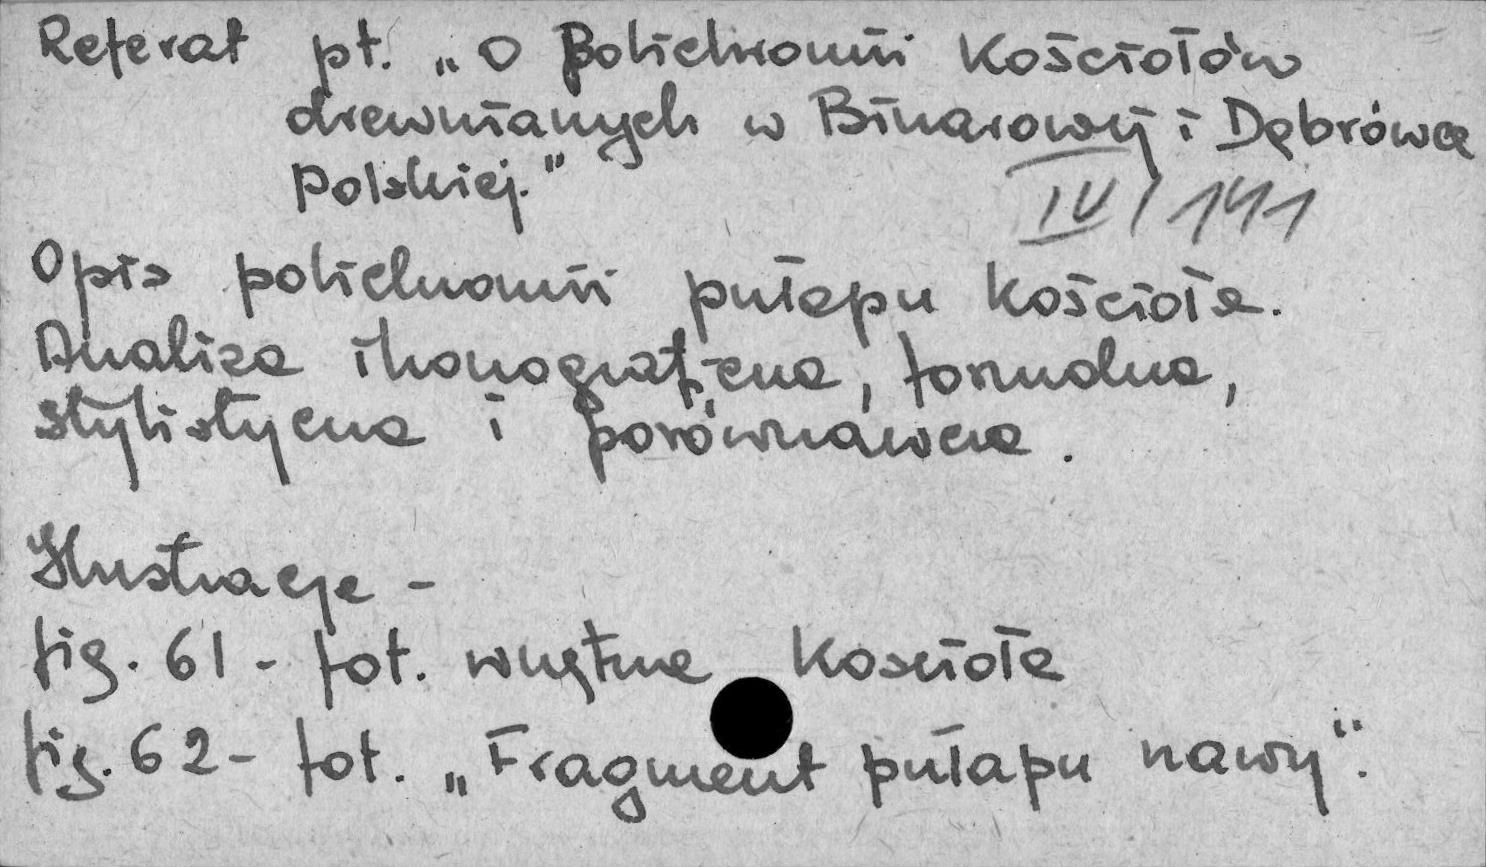 Referat pt. „O Polichromii Kościołów
drewnianych w Binarowej i Dębrówce
Polskiej."
IV/141
Opis polichromii pułapu kościoła.
Analiza ikonograficzna, formalna,
stylistyczna i porównawcza.
Ilustracje -
fig. 61 - fot. wnętrza Kościoła
fig. 62 - fot. „Fragment pułapu nawy".